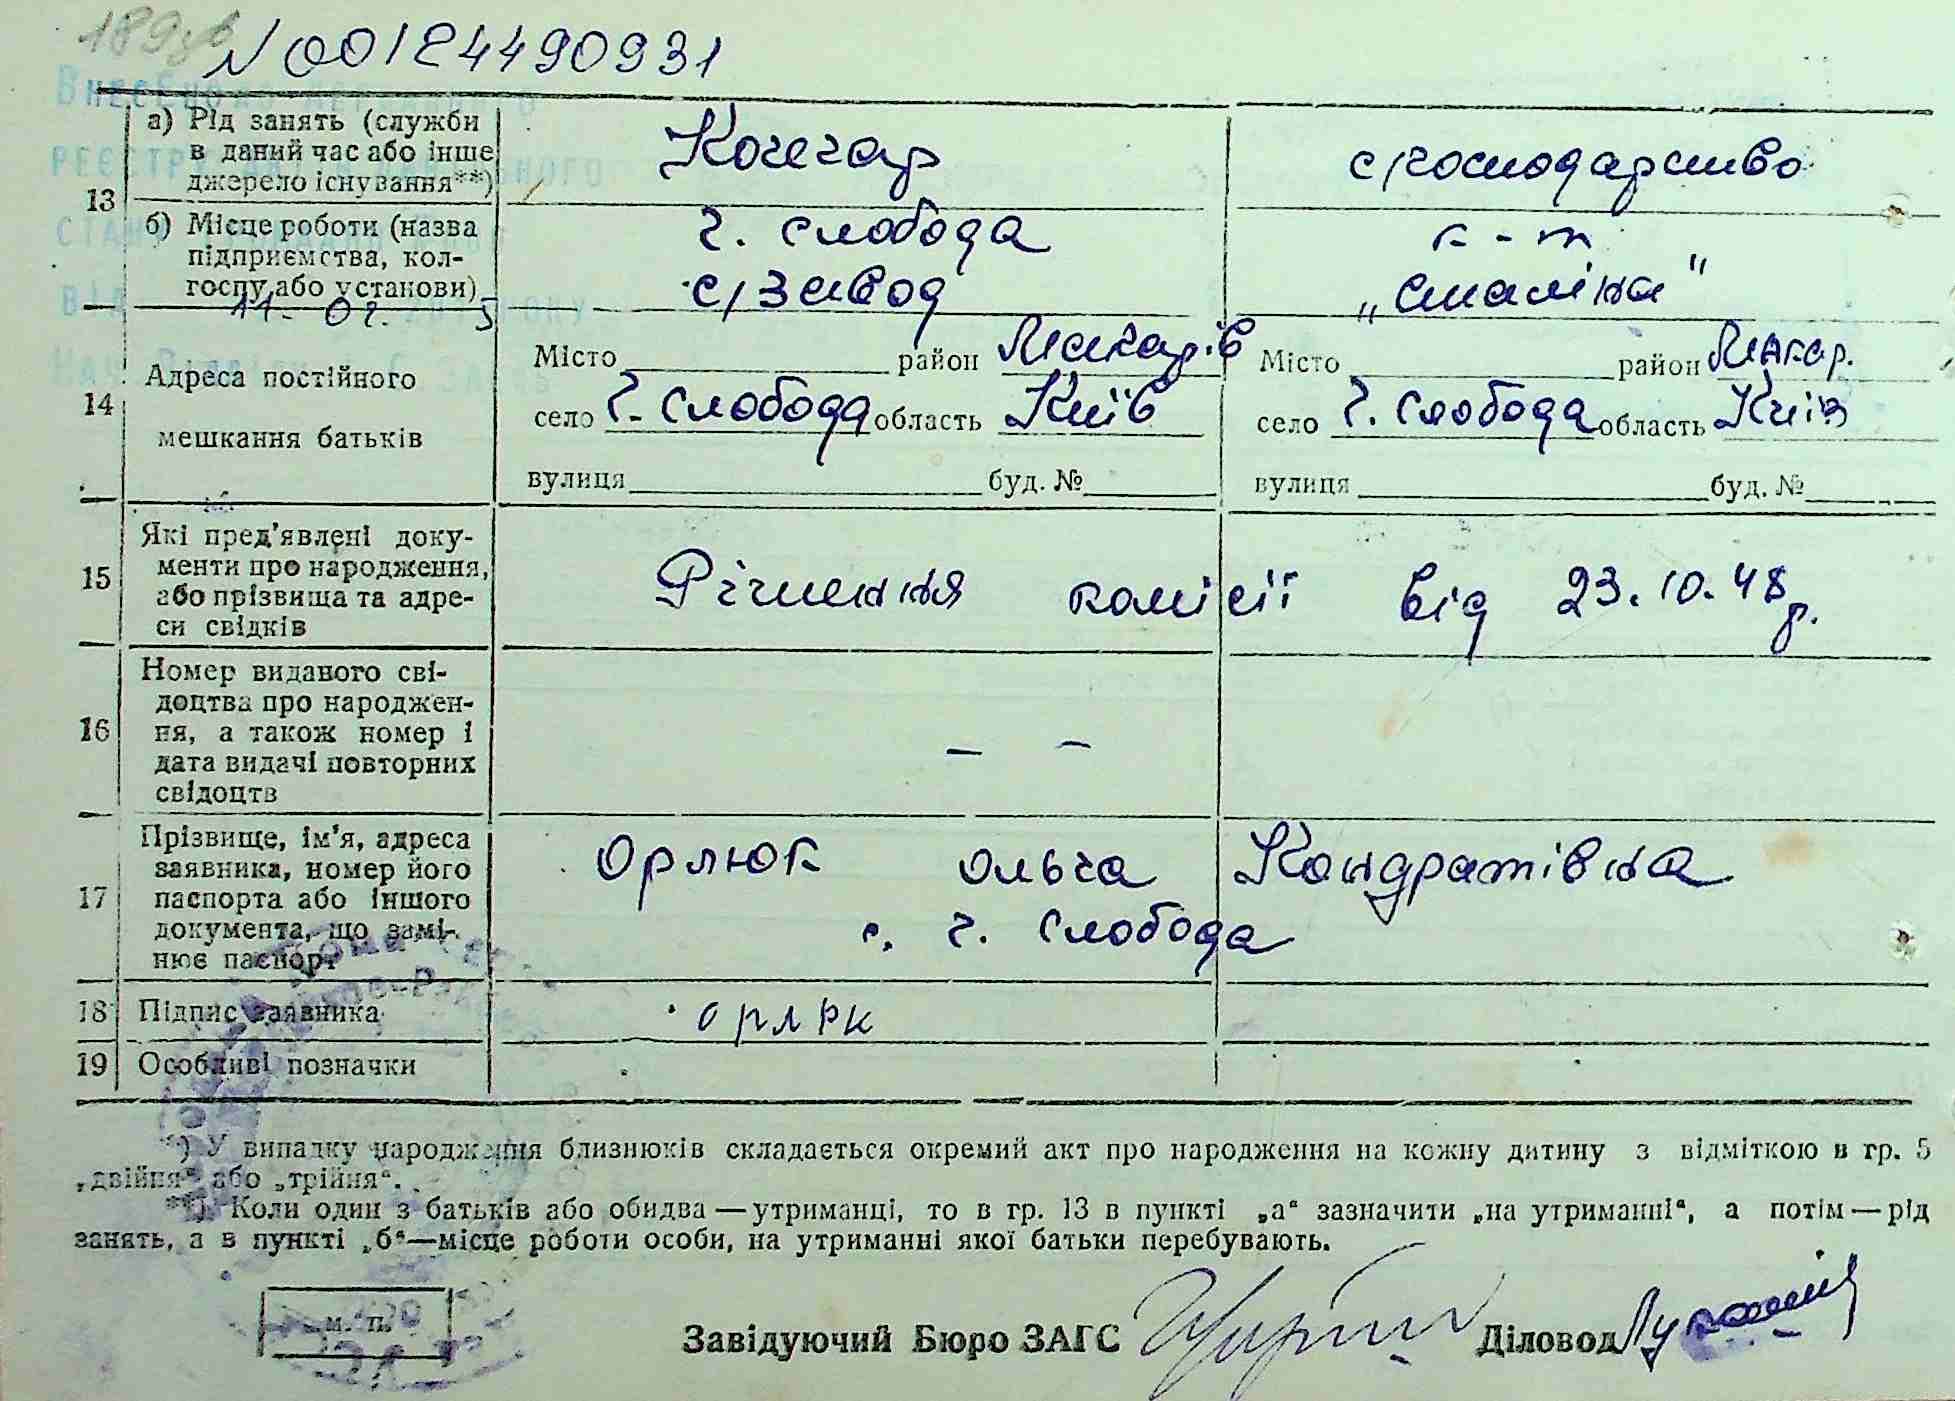 189
N 00124490931
Внесено до Державного
реєстру актів цивільного
стану
від 11. 02. 2015 року
13 а) Рід занять (служби в даний час або інше джерело існування**)
Кочегар
с/господарство
б) Місце роботи (назва підприємства, колгоспу або установи)
г. слобода
с/завод
к-т
„Сталіна"
14 Адреса постійного мешкання батьків
Місто район Макарів
село г. слобода область Київ
вулиця буд. №
Місто район Макар.
село г. слобода область Київ
вулиця буд. №
15 Які пред'явлені документи про народження, або прізвища та адреси свідків
Рішення комісії від 23.10.48 р.
16 Номер виданого свідоцтва про народження, а також номер і дата видачі повторних свідоцтв
— —
17 Прізвище, ім'я, адреса заявника, номер його паспорта або іншого документа, що замінює паспорт
Орлюк Ольга Кондратівна
с. г. слобода
18 Підпис заявника
орлюк
19 Особливі позначки
*) У випадку народження близнюків складається окремий акт про народження на кожну дитину з відміткою в гр. 5
„двійня" або „трійня".
**) Коли один з батьків або обидва — утриманці, то в гр. 13 в пункті „а" зазначити „на утриманні", а потім — рід
занять, а в пункті „б" — місце роботи особи, на утриманні якої батьки перебувають.
м. п.
Завідуючий Бюро ЗАГС
Діловод